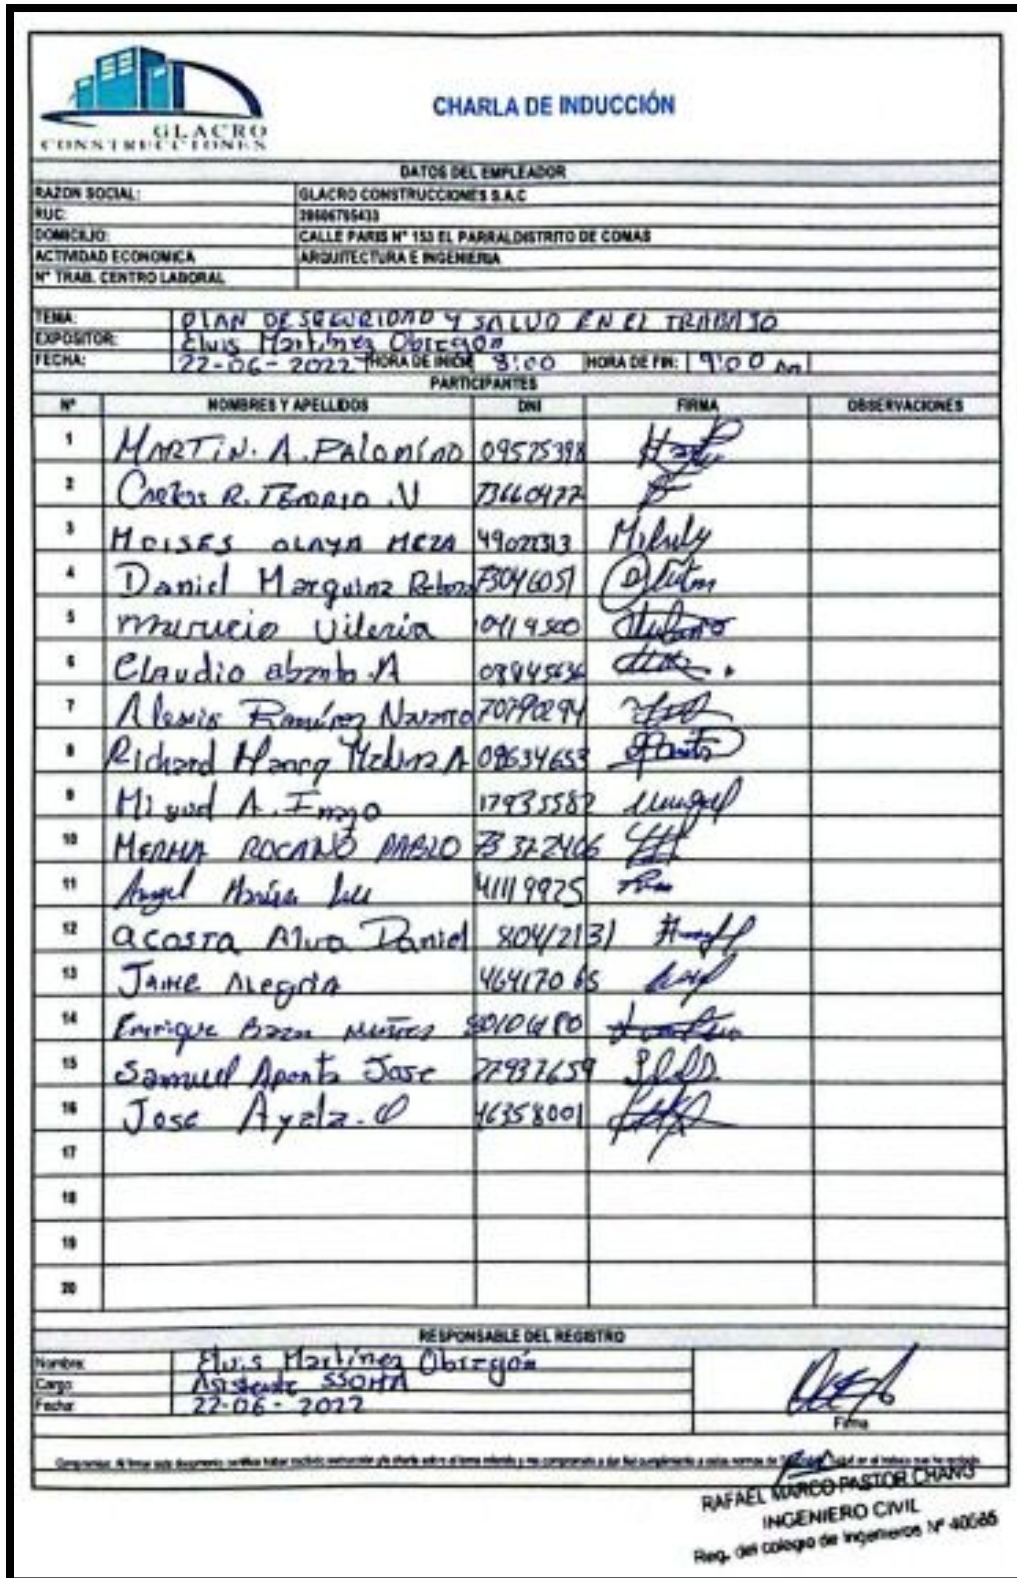 GLACRO
CONSTRUCCIONES
CHARLA DE INDUCCIÓN
DATOS DEL EMPLEADOR
RAZON SOCIAL: GLACRO CONSTRUCCIONES S.A.C
RUC: 20606795433
DOMICILIO: CALLE PARIS N° 153 EL PARRALDISTRITO DE COMAS
ACTIVIDAD ECONOMICA ARQUITECTURA E INGENIERIA
N° TRAB. CENTRO LABORAL
TEMA: PLAN DE SEGURIDAD Y SALUD EN EL TRABAJO
EXPOSITOR: Elvis Martínez Obregón
FECHA: 22-06-2022 HORA DE INICIO 8:00 HORA DE FIN: 9:00 Am
PARTICIPANTES
N° NOMBRES Y APELLIDOS DNI FIRMA OBSERVACIONES
1 MARTIN. A. PALOMINO 09575398
2 Carlos R. TENORIO .V 73660477
3 MOISES OLAYA MEZA 49022313
4 Daniel Marquina 73046051
5 Mauricio Vileria
6 Claudio abanto .A
7 Alexis Ramírez Navarro 70790294
8 Richard Medina A 09634653
9 Miguel A. 17935582
10 MERMA ROCANO PABLO 73322406
11 Angel 41119925
12 acosta Alva Daniel 80412131
13 JAIME Alegria 46417065
14 Enrique Bazan
15 Samuel Aponte Jose 27937659
16 Jose Ayala. O 46358001
17
18
19
20
RESPONSABLE DEL REGISTRO
Nombre: Elvis Martínez Obregón
Cargo: Asistente SSOMA
Fecha: 22-06-2022
Firma
RAFAEL MARCO PASTOR CHANG
INGENIERO CIVIL
Reg. del colegio de Ingenieros N° 40085